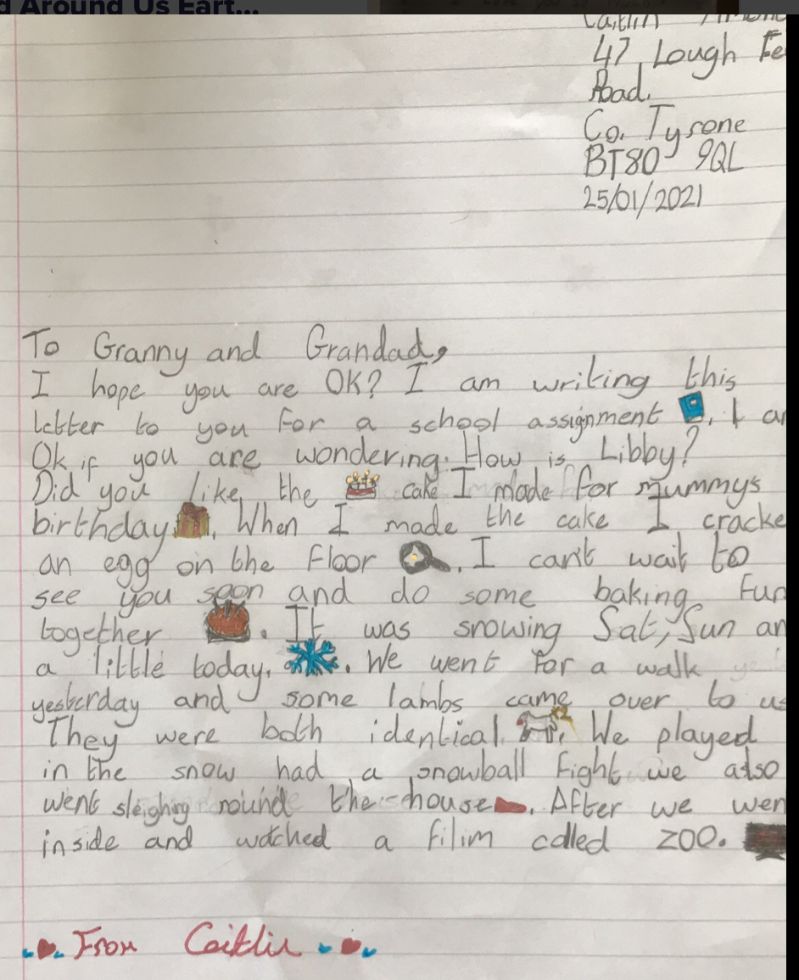 Around Us Eart...
Caitlin
47 Lough Fe
Road.
Co. Tyrone
BT80 9QL
25/01/2021
To Granny and Grandad,
I hope you are OK? I am writing this
letter to you for a school assignment. I a
Ok if you are wondering. How is Libby?
Did you like the cake I made for mummys
birthday. When I made the cake I cracke
an egg on the floor. I can't wait to
see you soon and do some baking fun
together. It was snowing Sat, Sun an
a little today. We went for a walk
yesterday and some lambs came over to us
They were both identical. We played
in the snow had a snowball fight we also
went sleighing round the house. After we wen
inside and watched a filim called zoo.
From Caitlin